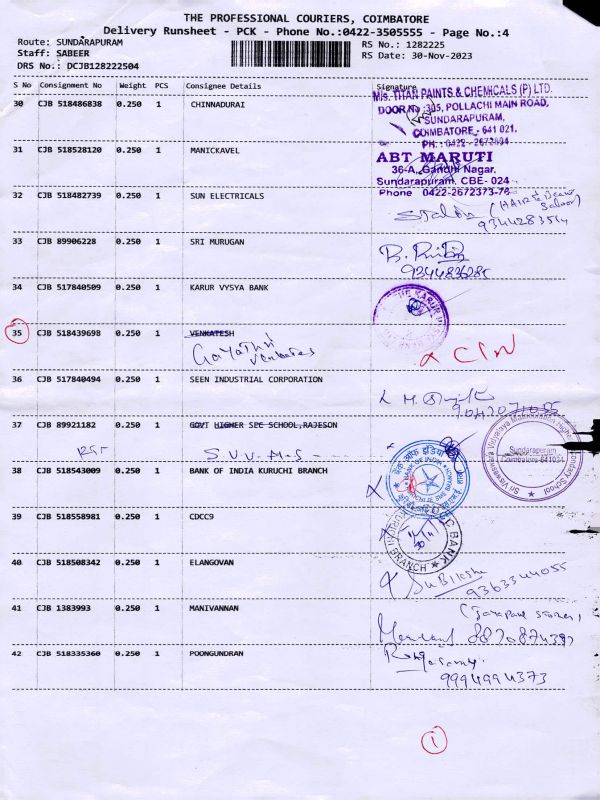 THE PROFESSIONAL COURIERS, COIMBATORE
Delivery Runsheet - PCK - Phone No.:0422-3505555 - Page No.:4
Route: SUNDARAPURAM
Staff: SABEER
DRS No.: DCJB128222504
RS No.: 1282225
RS Date: 30-Nov-2023
S No Consignment No Weight PCS Consignee Details Signature
M/s. TITAN PAINTS & CHEMICALS (P) LTD.
30 CJB 518486838 0.250 1 CHINNADURAI
DOOR No : 305, POLLACHI MAIN ROAD,
SUNDARAPURAM,
COIMBATORE - 641 021.
PH : 0422 - 2672694
31 CJB 518528120 0.250 1 MANICKAVEL
ABT MARUTI
36-A, Gandhi Nagar,
Sundarapuram, CBE- 024
Phone 0422-2672373-76
32 CJB 518482739 0.250 1 SUN ELECTRICALS
9344283514
33 CJB 89906228 0.250 1 SRI MURUGAN
9344836285
34 CJB 517840509 0.250 1 KARUR VYSYA BANK
THE KARUR
35 CJB 518439698 0.250 1 VENKATESH
Gayathri
Ventures
36 CJB 517840494 0.250 1 SEEN INDUSTRIAL CORPORATION
37 CJB 89921182 0.250 1 GOVT HIGHER SPE SCHOOL,RAJESON
S.V.V.M.S
Sundarapuram
Coimbatore-641024
38 CJB 518543009 0.250 1 BANK OF INDIA KURUCHI BRANCH
बैंक ऑफ इंडिया
BANK OF INDIA
39 CJB 518558981 0.250 1 CDCC9
BANK
BRANCH
40 CJB 518508342 0.250 1 ELANGOVAN
9363344055
41 CJB 1383993 0.250 1 MANIVANNAN
42 CJB 518335360 0.250 1 POONGUNDRAN
9994994373
1